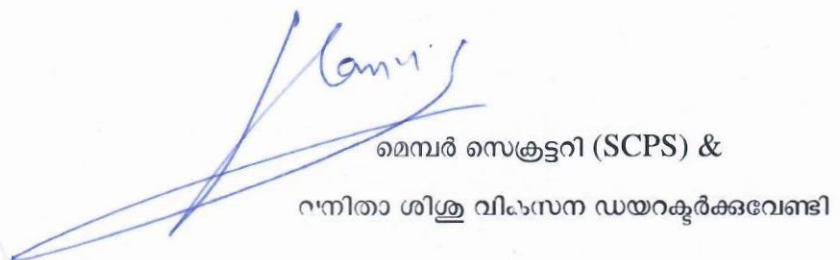 മെമ്പർ സെക്രട്ടറി (SCPS) &
വനിതാ ശിശു വികസന ഡയറക്ടർക്കുവേണ്ടി